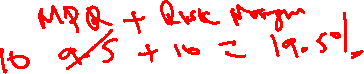 MPR + Risk Margin
10 9.5 + 10 = 19.5%